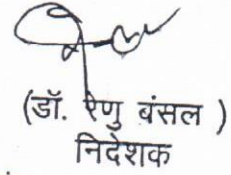 (डॉ. रेणु बंसल )
निदेशक